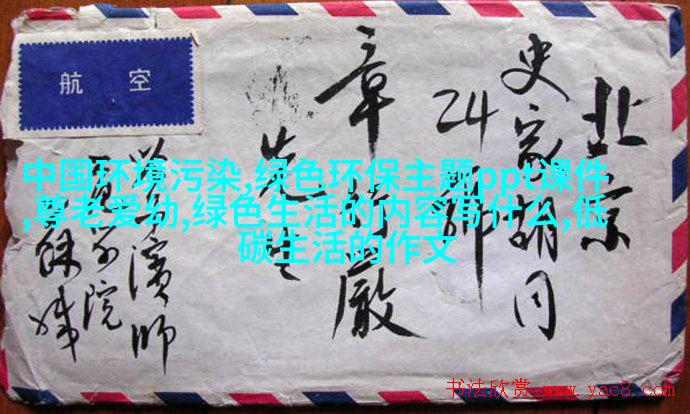 航空
北京
史家胡同
24
章 嚴
先生
濱師
院
中国环境污染,绿色环保主题ppt课件
,尊老爱幼,绿色生活的内容写什么,低
碳生活的作文
书法欣赏 www.yac8.com